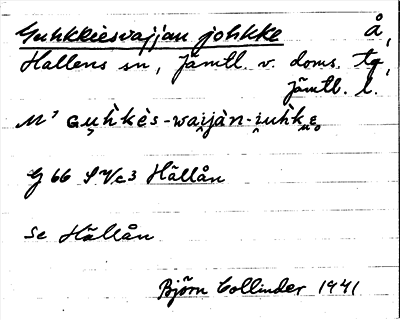 Guhkkiesvajjan johkke å,
Hallens sn, Jämtl. v. doms. tg,
Jämtl. l.
M' Guhkès-waijàn-
G 66 S
Hällån
Se Hällån
Björn Collinder 1941